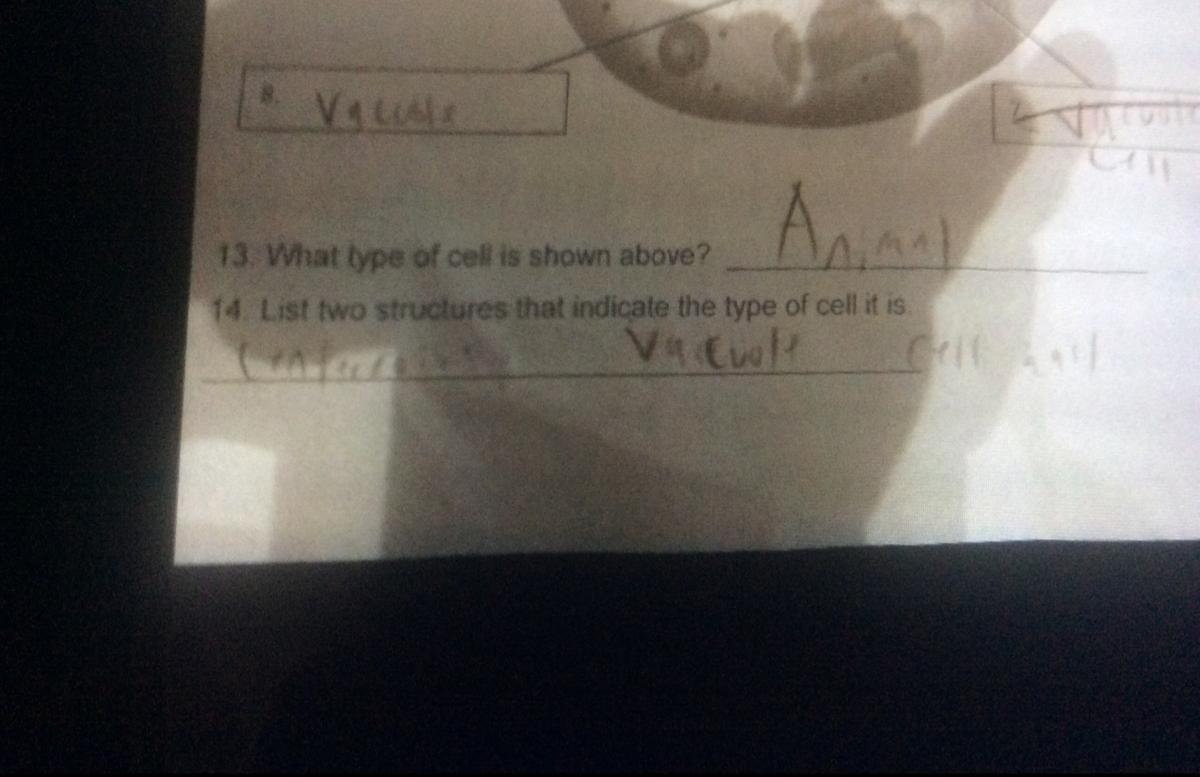 8. Vacuole
7. Vacuole
Cell
13. What type of cell is shown above? Animal
14. List two structures that indicate the type of cell it is.
Vacuole Cell